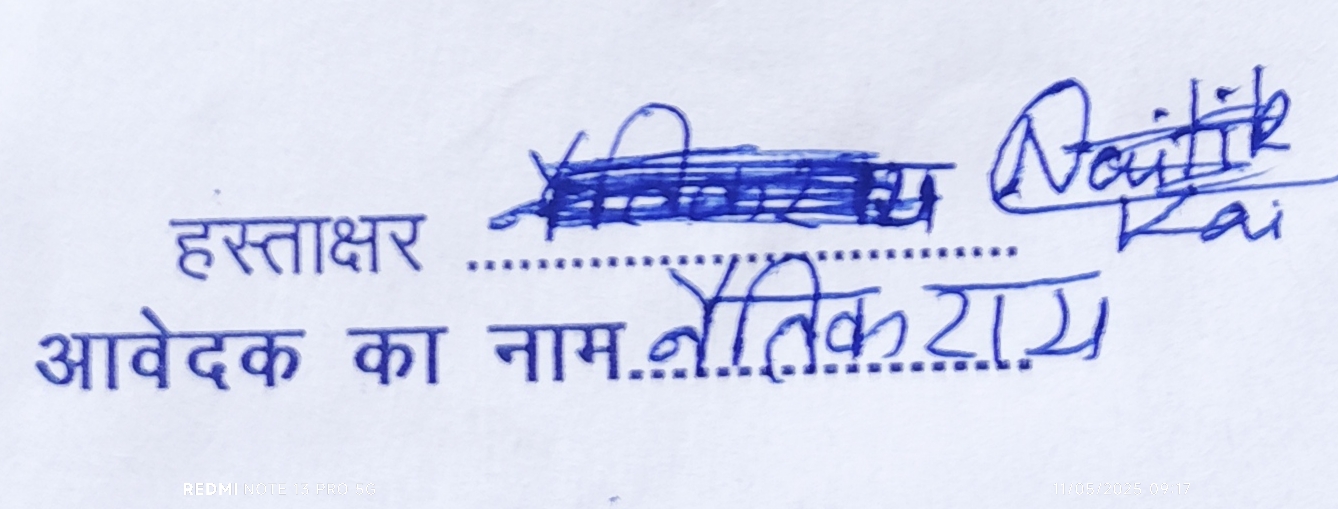 Naitik
Rai
हस्ताक्षर ..........................................
आवेदक का नाम नैतिक राय
REDMI NOTE 13 PRO 5G
11/05/2025 09:17